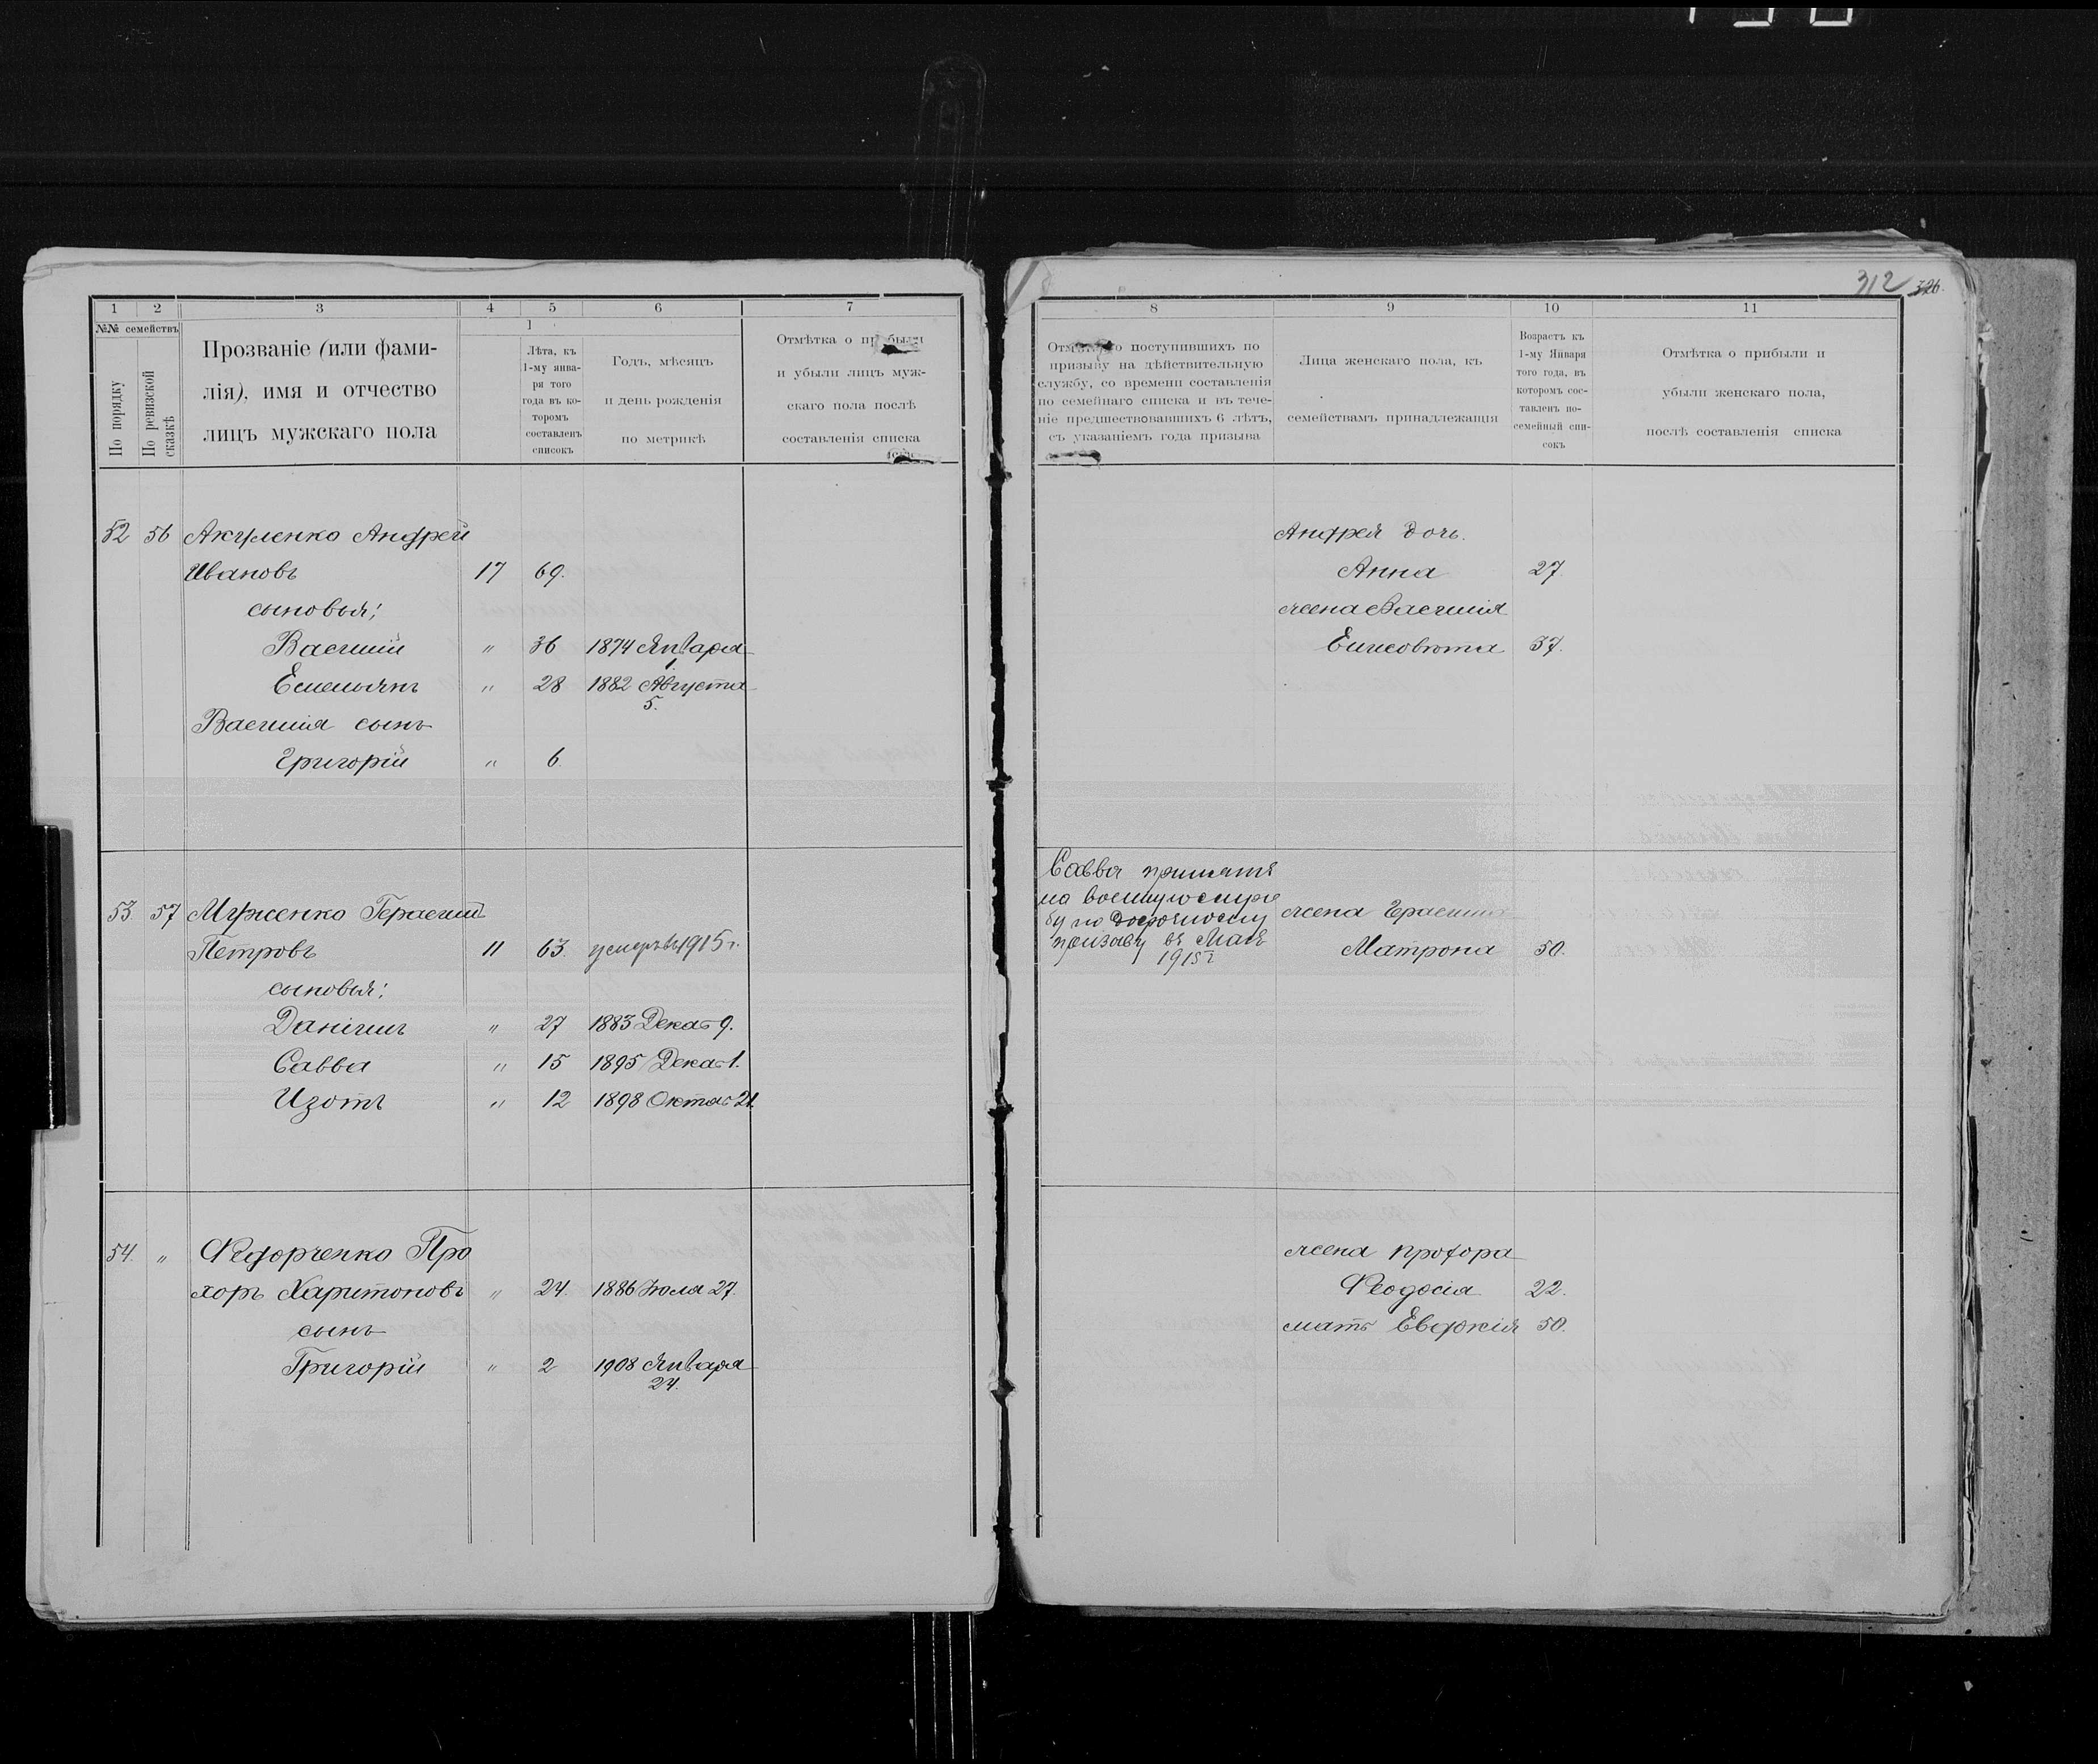 312 326.
1 2 3 4 5 6 7
№№ семействъ
По порядку
По ревизской сказкѣ
Прозваніе (или фами-
лія), имя и отчество
лицъ мужскаго пола
1
Лѣта, къ
1-му янва-
ря того
года въ ко-
торомъ
составленъ
списокъ
Годъ, мѣсяцъ
и день рожденія
по метрикѣ
Отмѣтка о прибыли
и убыли лицъ муж-
скаго пола послѣ
составленія списка
52 56 Акуленко Андрей
Ивановъ 17 69.
сыновья:
Василій " 36 1874 Января
1.
Емельянъ " 28 1882 Августа
5.
Василія сынъ
Григорій " 6.
53. 57 Муженко Герасимъ
Петровъ 11 63. умеръ въ 1915 г.
сыновья:
Даніилъ " 27 1883 Декаб 9.
Савва " 15 1895 Декаб 1.
Изотъ " 12 1898 Октяб 21.
54. " Федорченко Про
хоръ Харитоновъ " 24. 1886 Іюля 27.
сынъ
Григорій " 2 1908 Января
24.
8 9 10 11
Отмѣтка о поступившихъ по
призыву на дѣйствительную
службу, со времени составленія
по семейнаго списка и въ тече-
ніе предшествовавшихъ 6 лѣтъ,
съ указаніемъ года призыва
Лица женскаго пола, къ
семействамъ принадлежащія
Возрастъ къ
1-му Января
того года, въ
которомъ сос-
тавленъ по-
семейный спи-
сокъ
Отмѣтка о прибыли и
убыли женскаго пола,
послѣ составленія списка
Андрея дочь.
Анна 27.
жена Василія
Елисовета 37.
Савва принятъ
на военную служ
бу по досрочному
призыву въ Маѣ
1915 г
жена Герасима
Матрона 50.
жена Прохора
Феодосія 22.
мать Евдокія 50.